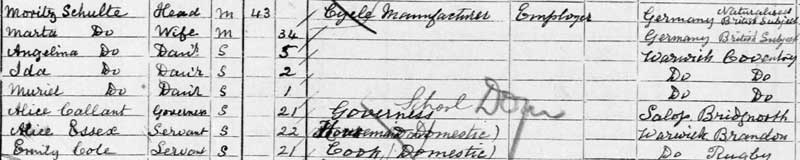 Moritz Schulte Head M 43 Cycle Manufacturer Employer Germany Naturalised British Subject
Marta Do Wife M 34 Germany British Subject
Angelina Do Daur S 5 Warwick Coventry
Ida Do Daur S 2 Do Do
Muriel Do Daur S 1 Do Do
Alice Callant Governess S 21 Governess School Dom Salop Bridgnorth
Alice Essex Servant S 22 Housemaid (Domestic) Warwick Brandon
Emily Cole Servant S 21 Cook (Domestic) Do Rugby